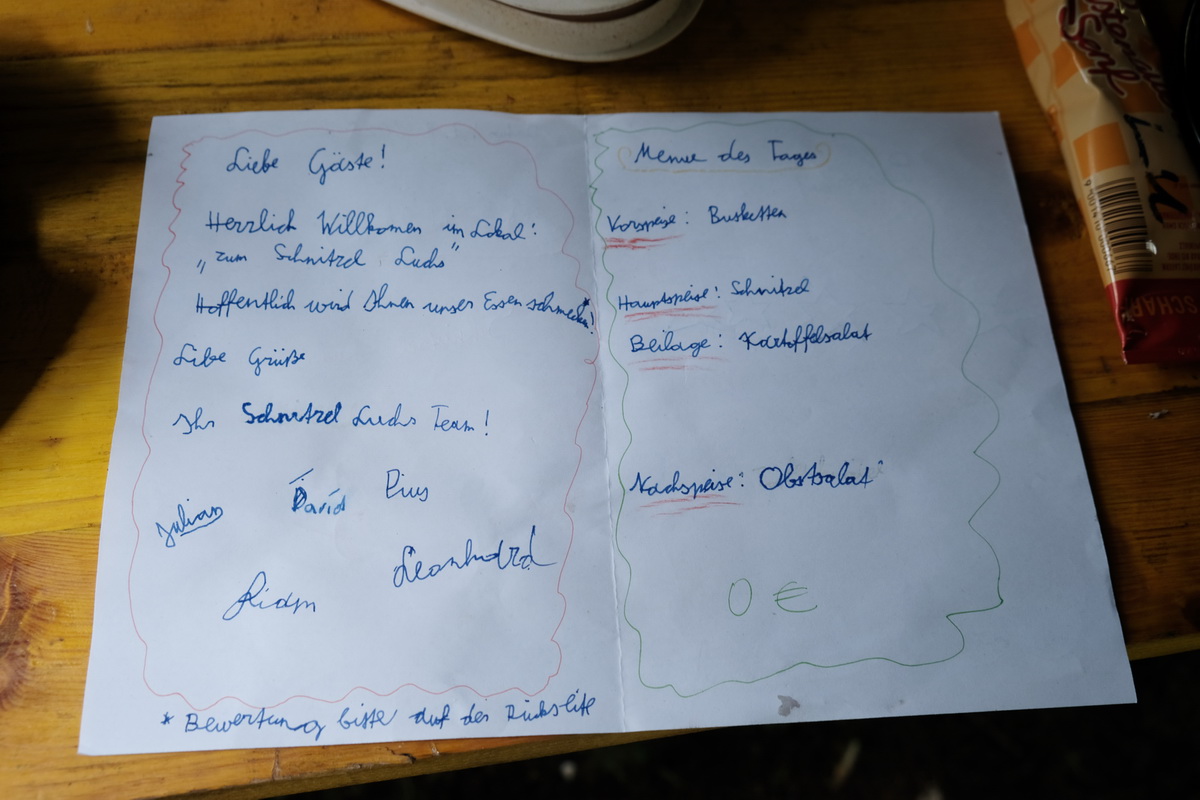 Liebe Gäste!
Herzlich Willkomen im Lokal:
„zum Schnitzel Luchs"
Hoffentlich wird Ihnen unser Essen schmecken*!
Libe Grüße
Ihr Schnitzel Luchs Team!
Julian David Pius
Leonhard
* Bewertung bitte auf der Rückseite
Menue des Tages
Vorspeise: Busketten
Hauptspeise: Schnitzel
Beilage: Kartoffelsalat
Nachspeise: Obstsalat
0 €
Senf